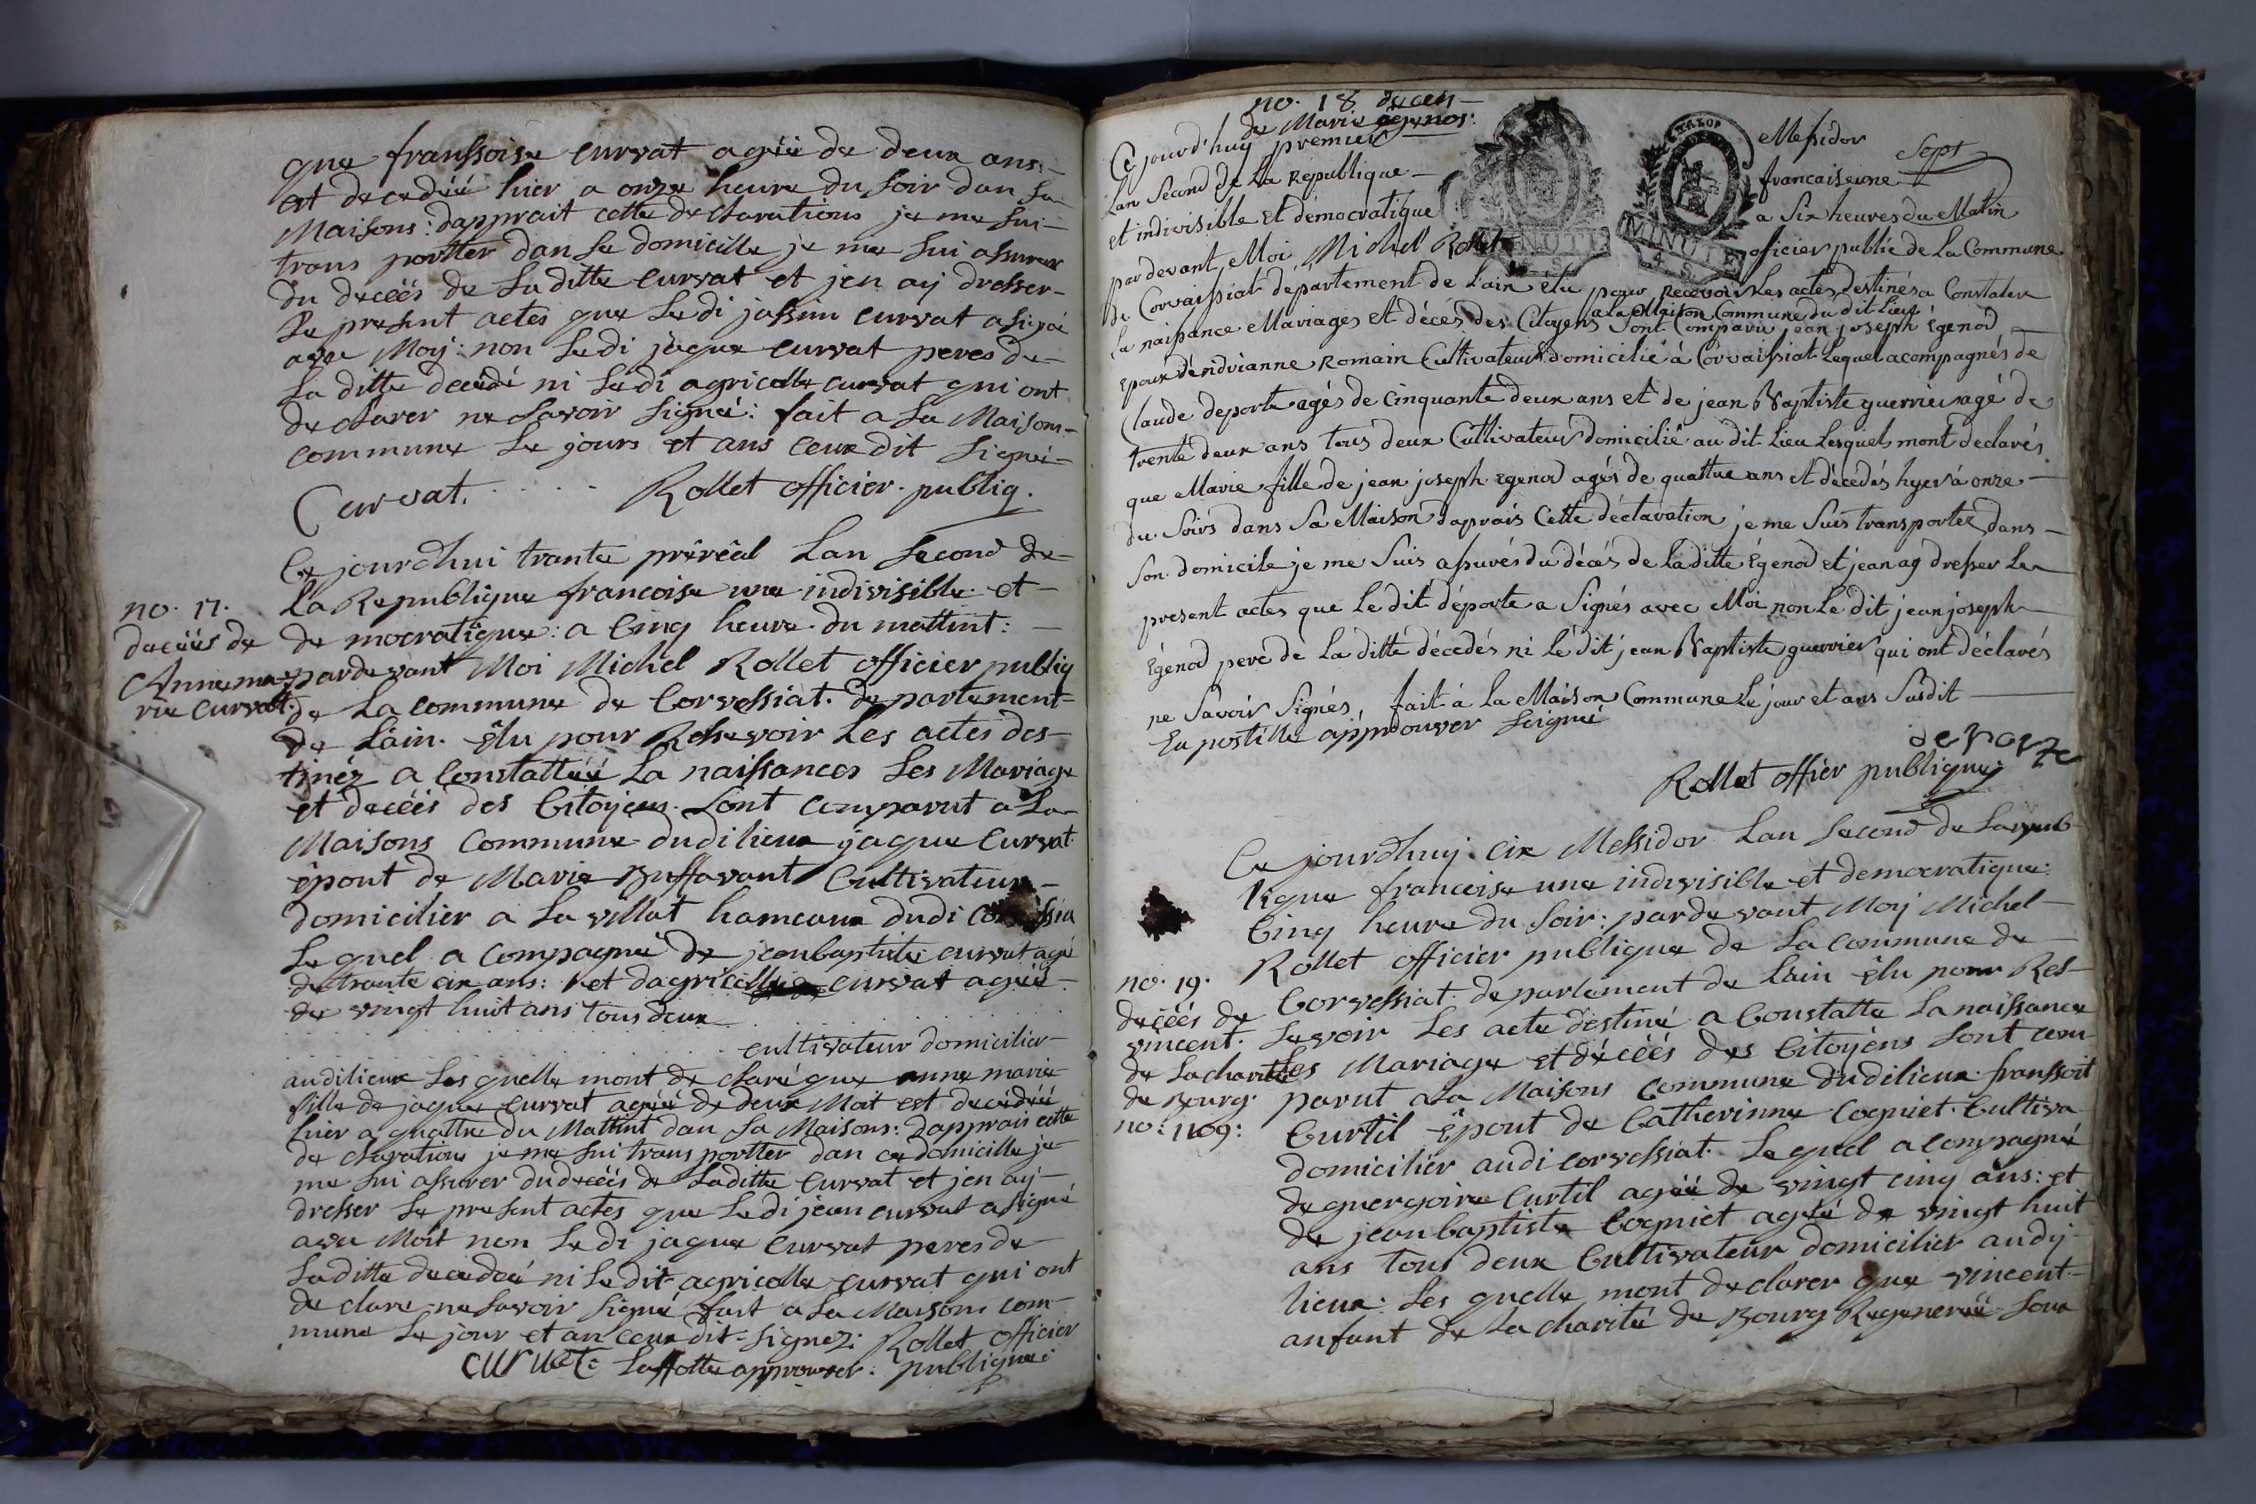 que franssoise curvat agéé de deux ans:
est decedéé hier a onze heure du soir dan sa
Maisons: dapprait cette declarations je me sui
trans portter dan se domicille je me sui assurer
du decéés de la ditte curvat et jen aÿ dresser
le present actes que le di jossim curvat a signé
avec Moÿ: non le di jaque curvat peres de
la ditte decédé ni le di agricolle curvat qui ont
declarer ne savoir signeé: fait a la Maisons
commune le jours et ans ceux dit signé
Curvat. Rollet officier publiq.
Ce jourdhui trante préréal lan second de
la Republique francoise une indivisible et
de mocratique: a Cinq heure du mattint:
pardevant Moi Michel Rollet officier publiq
de la commune de Corvessiat departement
de l'ain élu pour Ressevoir les actes des
tinéz a constattéé la naissances les Mariage
et decéés des Citoÿens sont comparut a la
Maisons commune dudilieux jaque Curvat
époux de Marie Buffavant Cultivateur
domicilier a la villat hameaux dudi
lequel a compagné de jeanbaptiste curvat agé
de trante cix ans: et dagricolle curvat agéé
de vingt huit ans tous deux
cultivateur domicilier
audilieux les quelle mont declaré que anne marie
fille de jaque curvat agéé de deux Moit est decédéé
hier a quattre du Mattint dan sa Maisons: dapprais cette
de clarations je me sui trans portter dan ce domicille je
me sui assurer dudecéés de laditte curvat et jen aÿ
dresser le present actes que le di jean curvat a signé
avec Moit non le di jaque curvat peres de
laditte decedéé ni le dit agricolle curvat qui ont
de clare ne savoir signé fait a la Maisons com
mune le jour et an ceux dit signez: Rollet officier
curvat: approuver: publique
no. 17.
decéés de
Annema
rie curvat.
no. 18 decés
de Marie egenos:
Ce jourd'huy premier Messidor
Lan Second de La Republique francaise une
et indivisible et démocratique a Six heures du Matin
Sept
MINUTE
MINUTE
4. S.
pardevant Moi Michel Rollet officier public de La Commune
de Corvaissiat département de L'ain élu pour recevoir Les actes destinés a Constater
La naissance Mariages et décés des Citoyens Sont Comparu jean joseph Egenod
a La Maison Commune du dit Lieu
Epoux déndrianne Romain Cultivateur domicilié à Corvaissiat Lequel acompagnés de
Claude deporte agés de Cinquante deux ans et de jean Baptiste guerrier agé de
trente deux ans tous deux Cultivateur domicilié au dit Lieu Lesquels mont declarés
que Marie fille de jean joseph Egenod agés de quattre ans et décedés hyer à onze
du Soirs dans Sa Maison daprais Cette déclaration je me Suis transporter dans
Son domicile je me Suis assurés du décés de La ditte Egenod et jean aÿ dresser Le
present actes que Le dit déporte a Signés avec Moi non Le dit jean joseph
Egenod pere de La ditte décedés ni Le dit jean Baptiste guerrier qui ont déclarés
ne Savoir Signés, fait à La Maison Commune Le jour et ans Susdit
La postille approuver
Rollet offier publique
Ce jourdhuÿ cix Messidor Lan second de la repub
lique francoise une indivisible et democratique:
Cinq heure du soir: pardevant Moÿ Michel
Rollet officier publique de la commune de
Corvessiat departement de l'ain élu pour Res
sevoir les acte destiné a Constatte la naissance
les Mariage et décéés des Citoÿens sont com
parut a la Maisons commune dudilieux franssoit
Curtil époux de Catherinne Cogniet Cultiva
domicilier audi corvessiat. le quel a compagné
de guergoire Curtil agéé de vingt cinq ans: et
de jeanbaptiste Cogniet agéé de vingt huit
ans tous deux Cultivateur domicilier audÿ
lieux: les quelle mont declarer que vincent
anfant de la charité de Bourg Regeneréé sous
no. 19.
decéés de
vincent
de la charitté
de Bourg.
no: 1109: